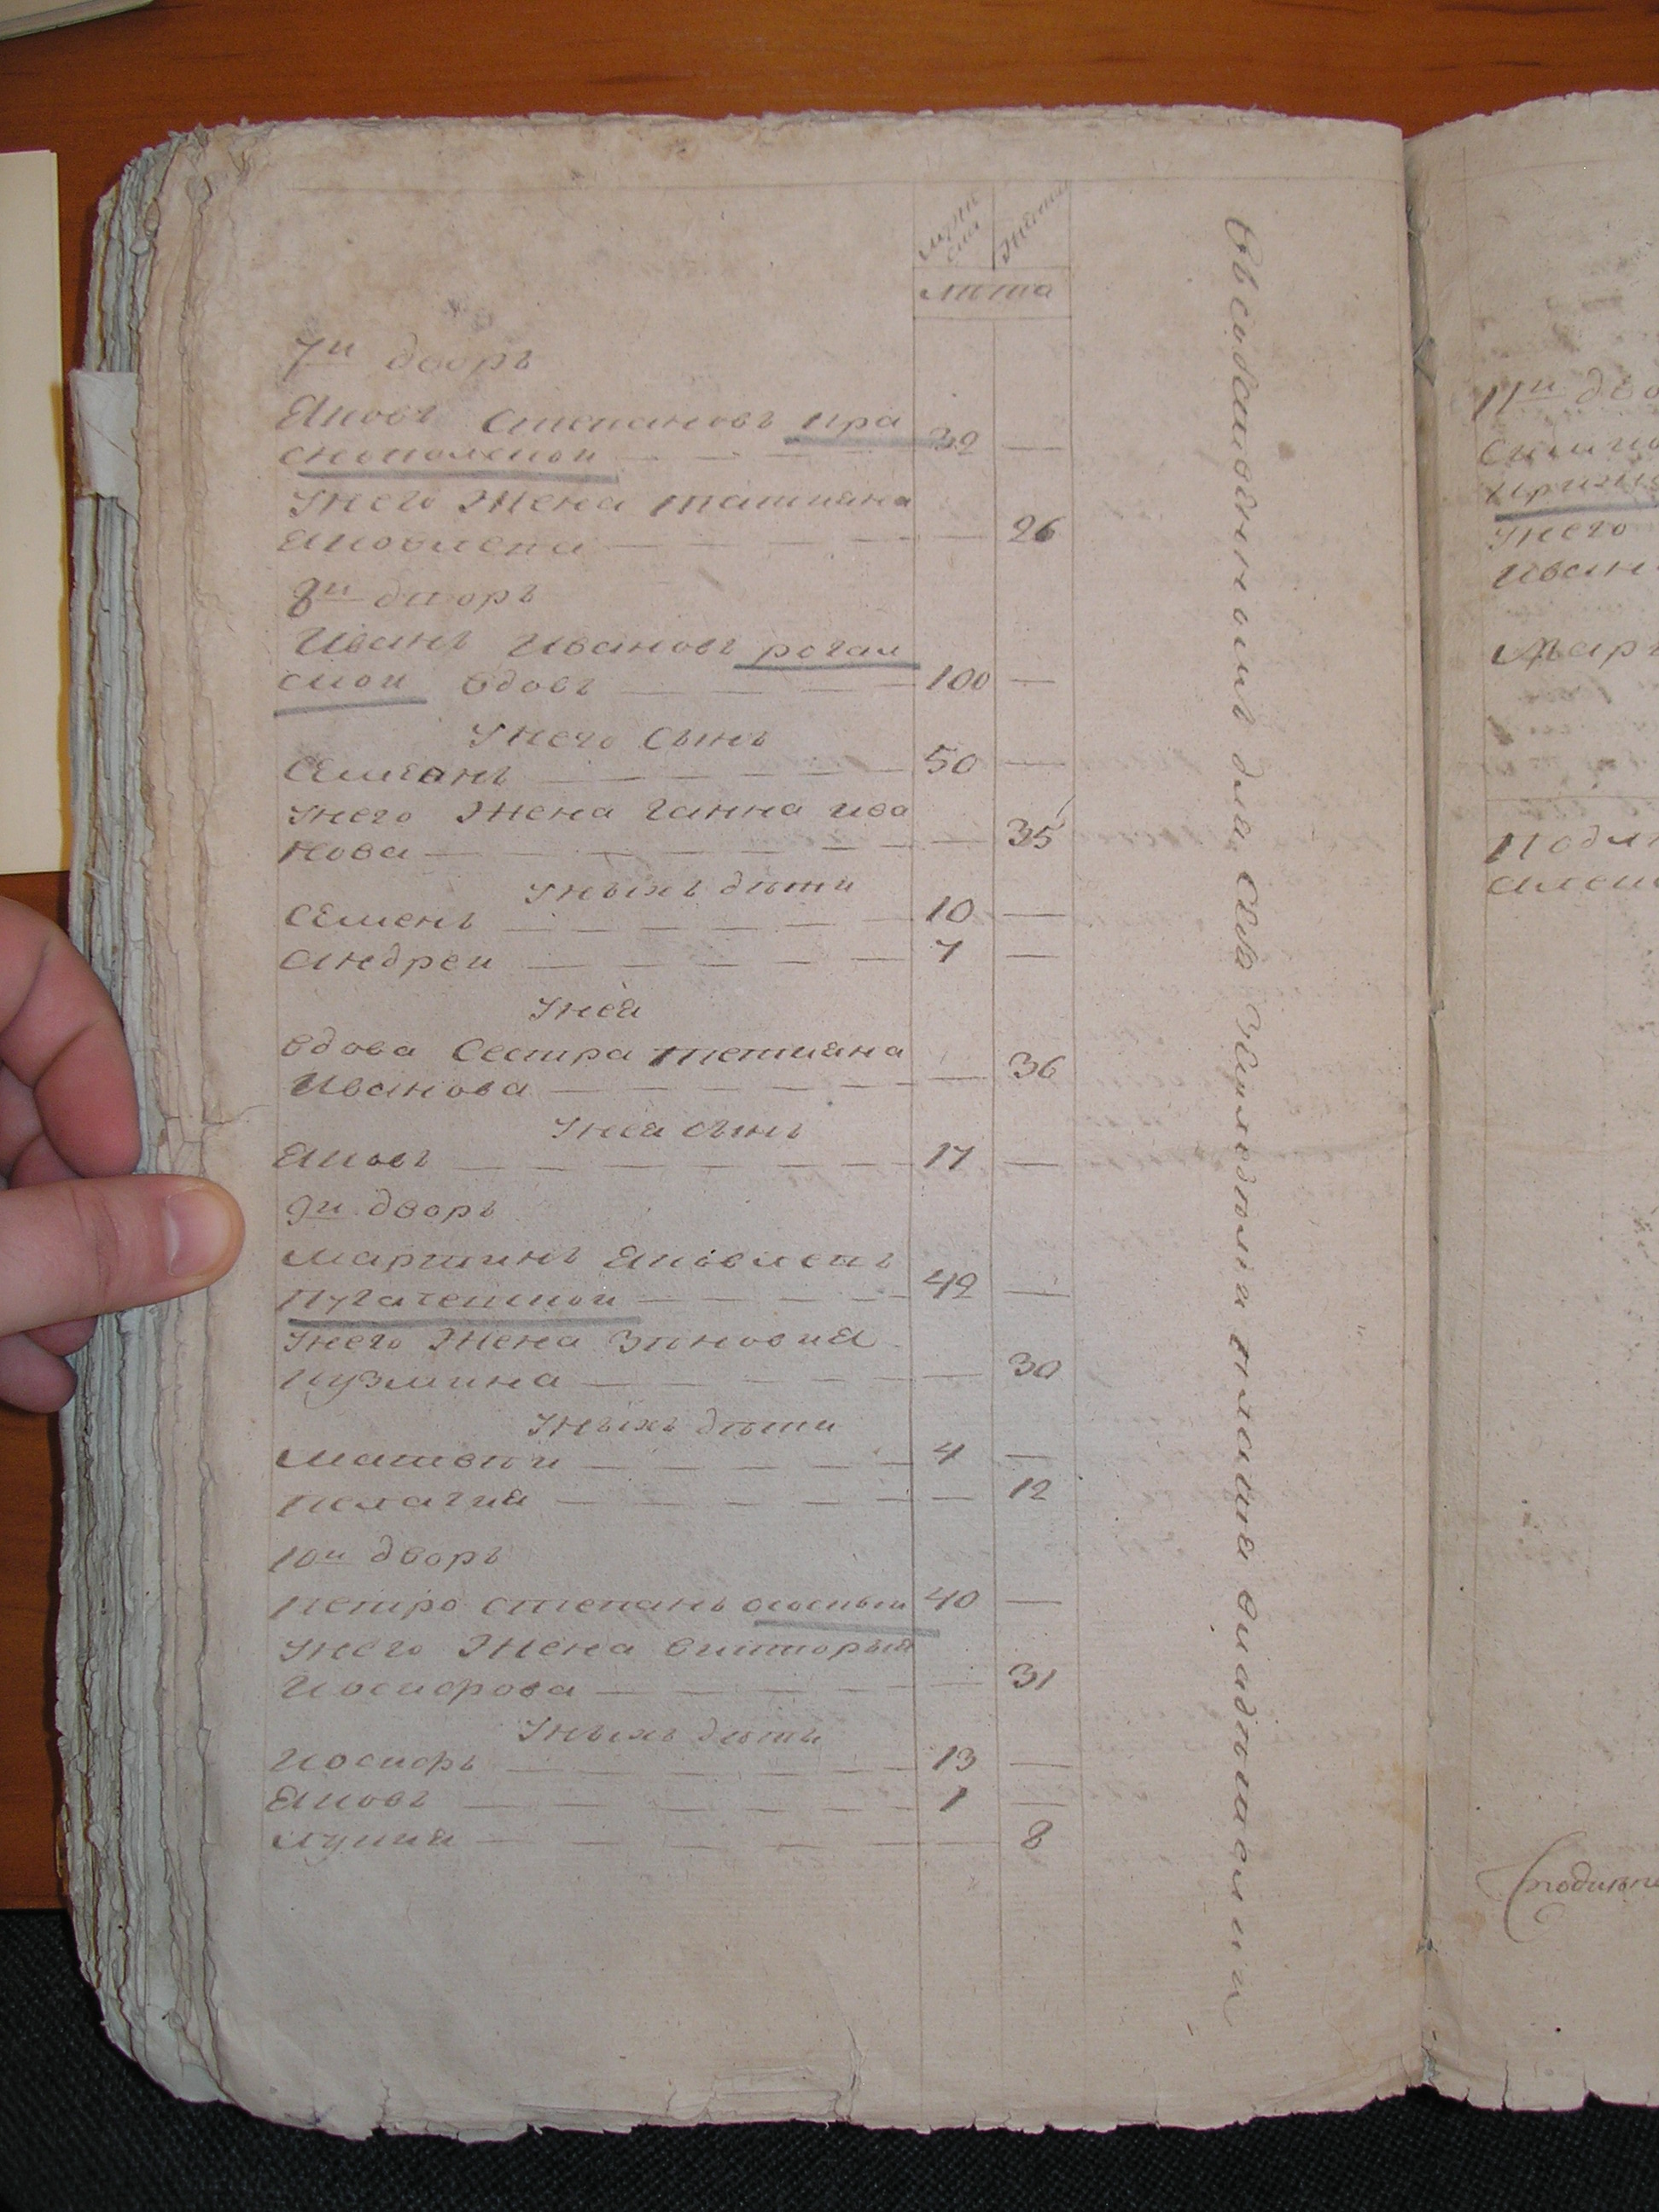 мужи
ска
Женска
лѣта
7й дворъ
Яковъ Степановъ Кра
снополской 39
Унего Жена татиана
Яковлева 26
8й дворъ
Иванъ Ивановъ рогал
ской вдовъ 100
Унего Сынъ
Семионъ 50
Унего Жена Ганна ива
нова 35
Уныхъ дѣти
Семенъ 10
Андреи 7
Унея
вдова Сестра тетиана
Иванова 36
Унея сынъ
Яковъ 17
9й дворъ
Мартинъ Яковлевъ
Пугачевской 42
Унего Жена Зиновия
Кузмина 30
Уныхъ дѣти
Матвѣй 4
Пелагия 12
10й дворъ
Петро Степанъ 40
Унего Жена викторыя
Иосифова 31
Уныхъ дѣти
Иосифъ 13
Яковъ 1
Лукия 8
для Себя
11й дво
Унего
Иван
Мар